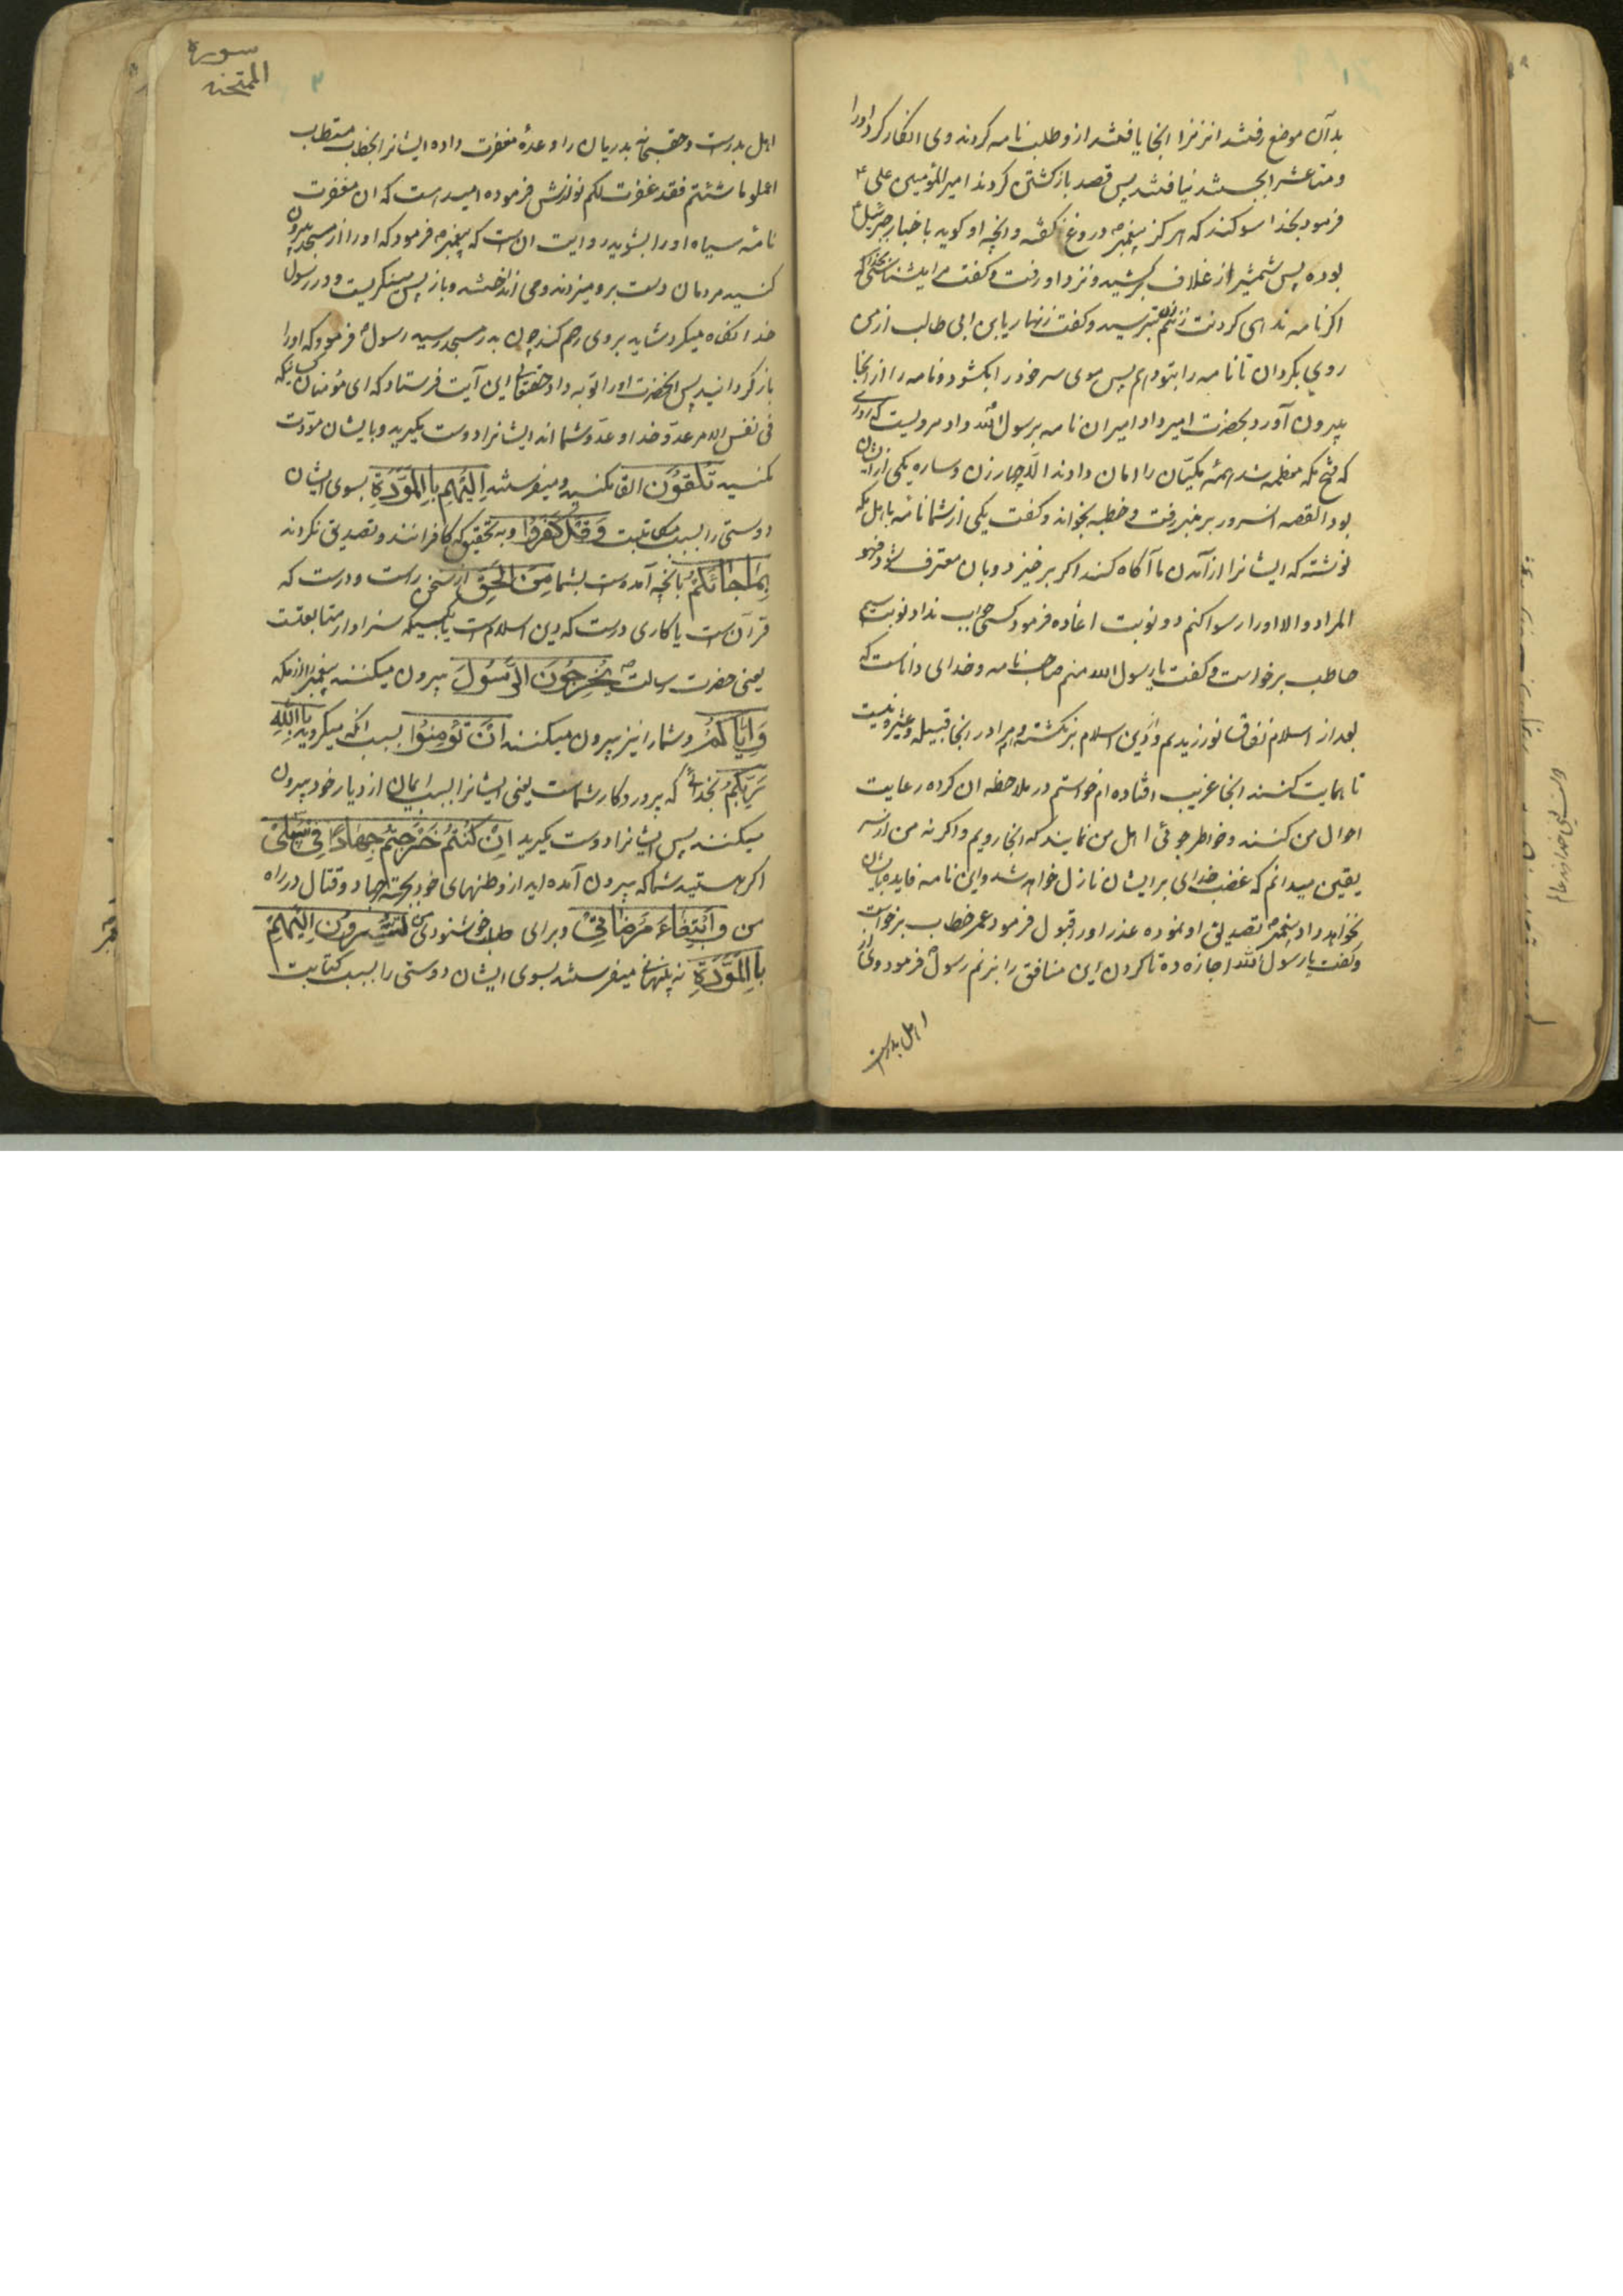 بدآن موضع رفتند انزنرا انجا یافتند ازو طلب نامه کردند وی انکار کرد اورا
و متاعش را بجستند نیافتند پس قصد بازکشتن کردند امیر المؤمنین علی ع
فرمود بخدا سوکند که هرکز پیغمبر ص دروغ نکفته و انچه او کوید باخبار جبرئیل ع
بوده پس شمشیر از غلاف برکشید و نزد او رفت و کفت مرا میشناسی بخدا که
اکر نامه ندهی کردنت بزنم زن بترسید و کفت زنهار یابن ابی طالب از من
روی بکردان تا نامه را بتو دهم پس موی سر خود را بکشود و نامه را از انجا
بیرون آورد بحضرت امیر داد امیر ان نامه برسول الله داد مرویست که روزی
که فتح مکه معظمه شد همهٔ مکیّان را امان دادند الّا چهار زن و ساره یکی از ایشان
بود القصه انسرور بر منبر رفت و خطبه بخواند و کفت یکی از شما نامه باهل مکه
نوشته که ایشانرا از آمدن ما آکاه کند اکر برخیزد و بان معترف شود فهو
المراد و الا اورا رسوا کنم دو نوبت اعاده فرمود کسی جواب نداد نوبت سیم
حاطب برخواست و کفت یا رسول الله منم صاحب نامه و خدای داناست که
بعد از اسلام نفاق نورزیدم و از دین اسلام برنکشته و مرا در انجا قبیله و عشیره نیست
تا حمایت کنند انجا غریب افتاده ام خواستم در ملاحظه ان کرده رعایت
احوال من کنند و خواطر جوئی اهل من نمایند که انجا رویم و اکر نه من از سر
یقین میدانم که غضب خدای بر ایشان نازل خواهد شد و این نامه فایده بایشان
نخواهد داد پیغمبر ص تصدیق او نموده عذر اورا قبول فرمود عمر خطاب برخواست
و کفت یا رسول الله اجازه ده تا کردن این منافق را بزنم رسول ص فرمود وی از
اهل بدرست
سورة
الممتحنه
اهل بدرست و حقسبحانه بدریان را وعدهٔ مغفرت داده ایشانرا بخطاب مستطاب
اعملوا ما شئتم فقد غفرت لکم نوازش فرموده امید است که ان مغفرت
نامهٔ سیاه اورا بشوید روایت ان است که پیغمبر ص فرمود که اورا از مسجد بیرون
کنید مردمان دست برو میزدند و می انداختند و باز پس مینکریست و در رسول
خدا نکاه میکرد شاید بروی رحم کند چون بدر مسجد رسید رسول ص فرمود که اورا
باز کردانید پس انحضرت اورا توبه داد حقتعالی این آیت فرستاد که ای مؤمنان کسانیکه
فی نفس الامر عدو خدا و عدو شما اند ایشانرا دوست مکیرید و با ایشان مودّت
مکنید تُلْقُونَ القا مکنید و میفرستید اِلَیْهِمْ بِالْمَوَدَّةِ بسوی ایشان
دوستی را بسبب مکاتبت وَ قَدْ کَفَرُوا و به تحقیق که کافرانند و تصدیق نکردند
بِمَا جَائَکُمْ بانچه آمده است بشما مِنَ الْحَقِّ از سخن راست و درست که
قرآنست یا کاری درست که دین اسلامست یا بکسیکه سزاوار متابعتست
یعنی حضرت رسالت ص یُخْرِجُونَ الرَّسُولَ بیرون میکنند پیغمبر را از مکه
وَ اِیَّاکُمْ و شما را نیز بیرون میکنند اَنْ تُؤْمِنُوا بسبب انکه میکروید بِاللّٰهِ
رَبِّکُمْ بخدائی که پروردکار شماست یعنی ایشانرا بسبب ایمان از دیار خود بیرون
میکنند پس ایشانرا دوست مکیرید اِنْ کُنْتُمْ خَرَجْتُمْ جِهَادًا فِی سَبِیلِی
اکر هستید شما که بیرون آمده اید از وطنهای خود بجهة جهاد و قتال در راه
من وَ ابْتِغَاءَ مَرْضَاتِی و برای طلب خوشنودی من تُسِرُّونَ اِلَیْهِمْ
بِالْمَوَدَّةِ به پنهانی میفرستید بسوی ایشان دوستی را بسبب کتابت